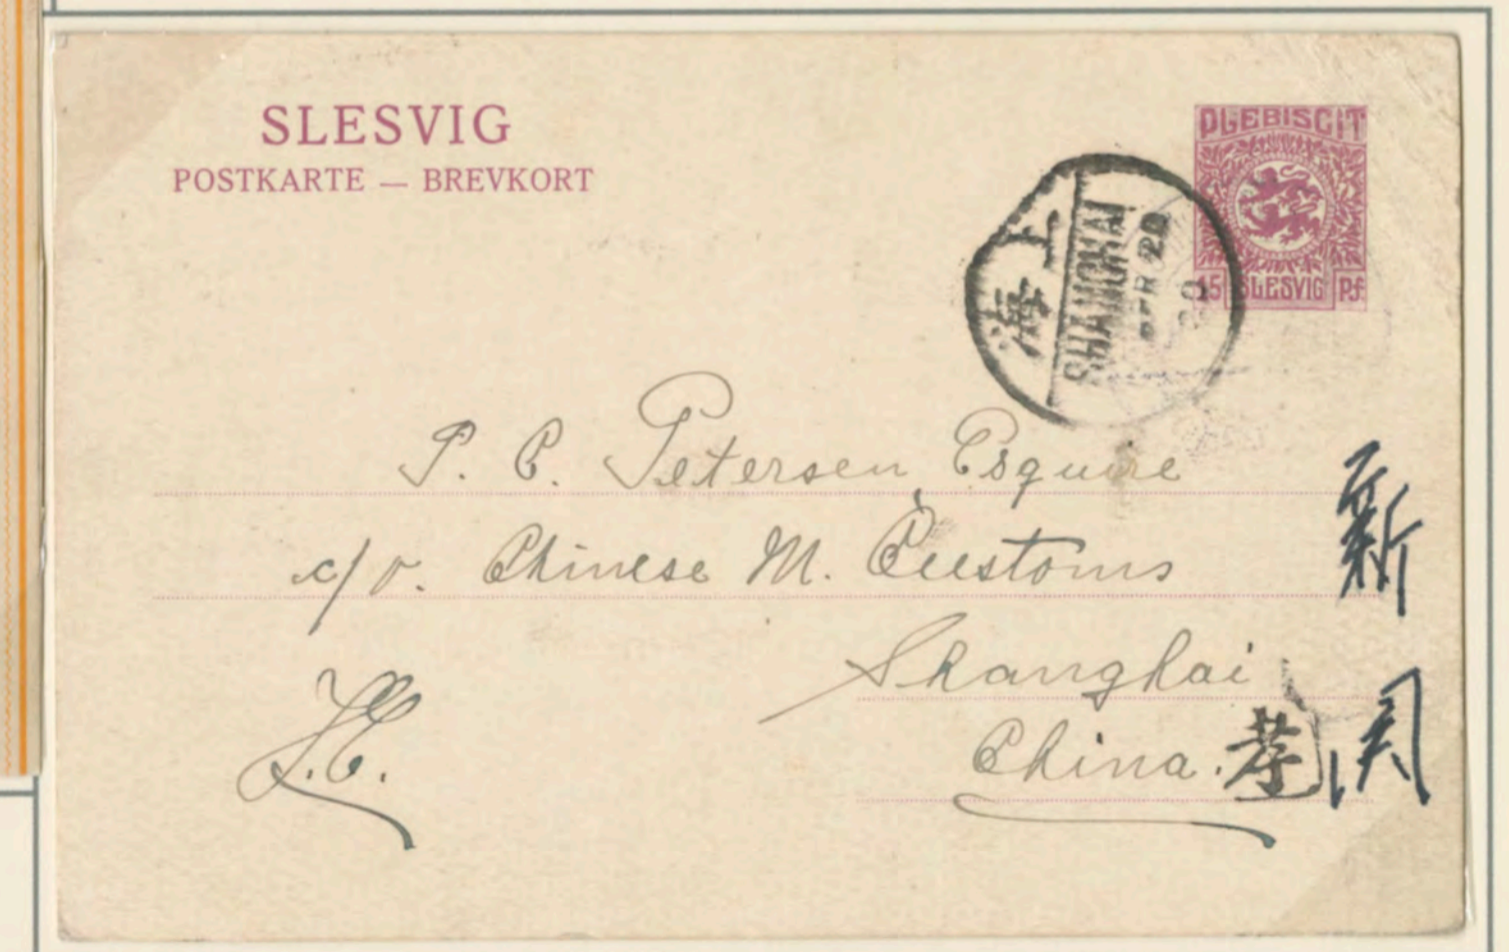 SLESVIG
POSTKARTE — BREVKORT
PLEBISCIT
15 SLESVIG Pf
上海
SHANGHAI
20
P. C. Petersen, Esquire
c/o. Chinese M. Customs
Shanghai
China.
新
関